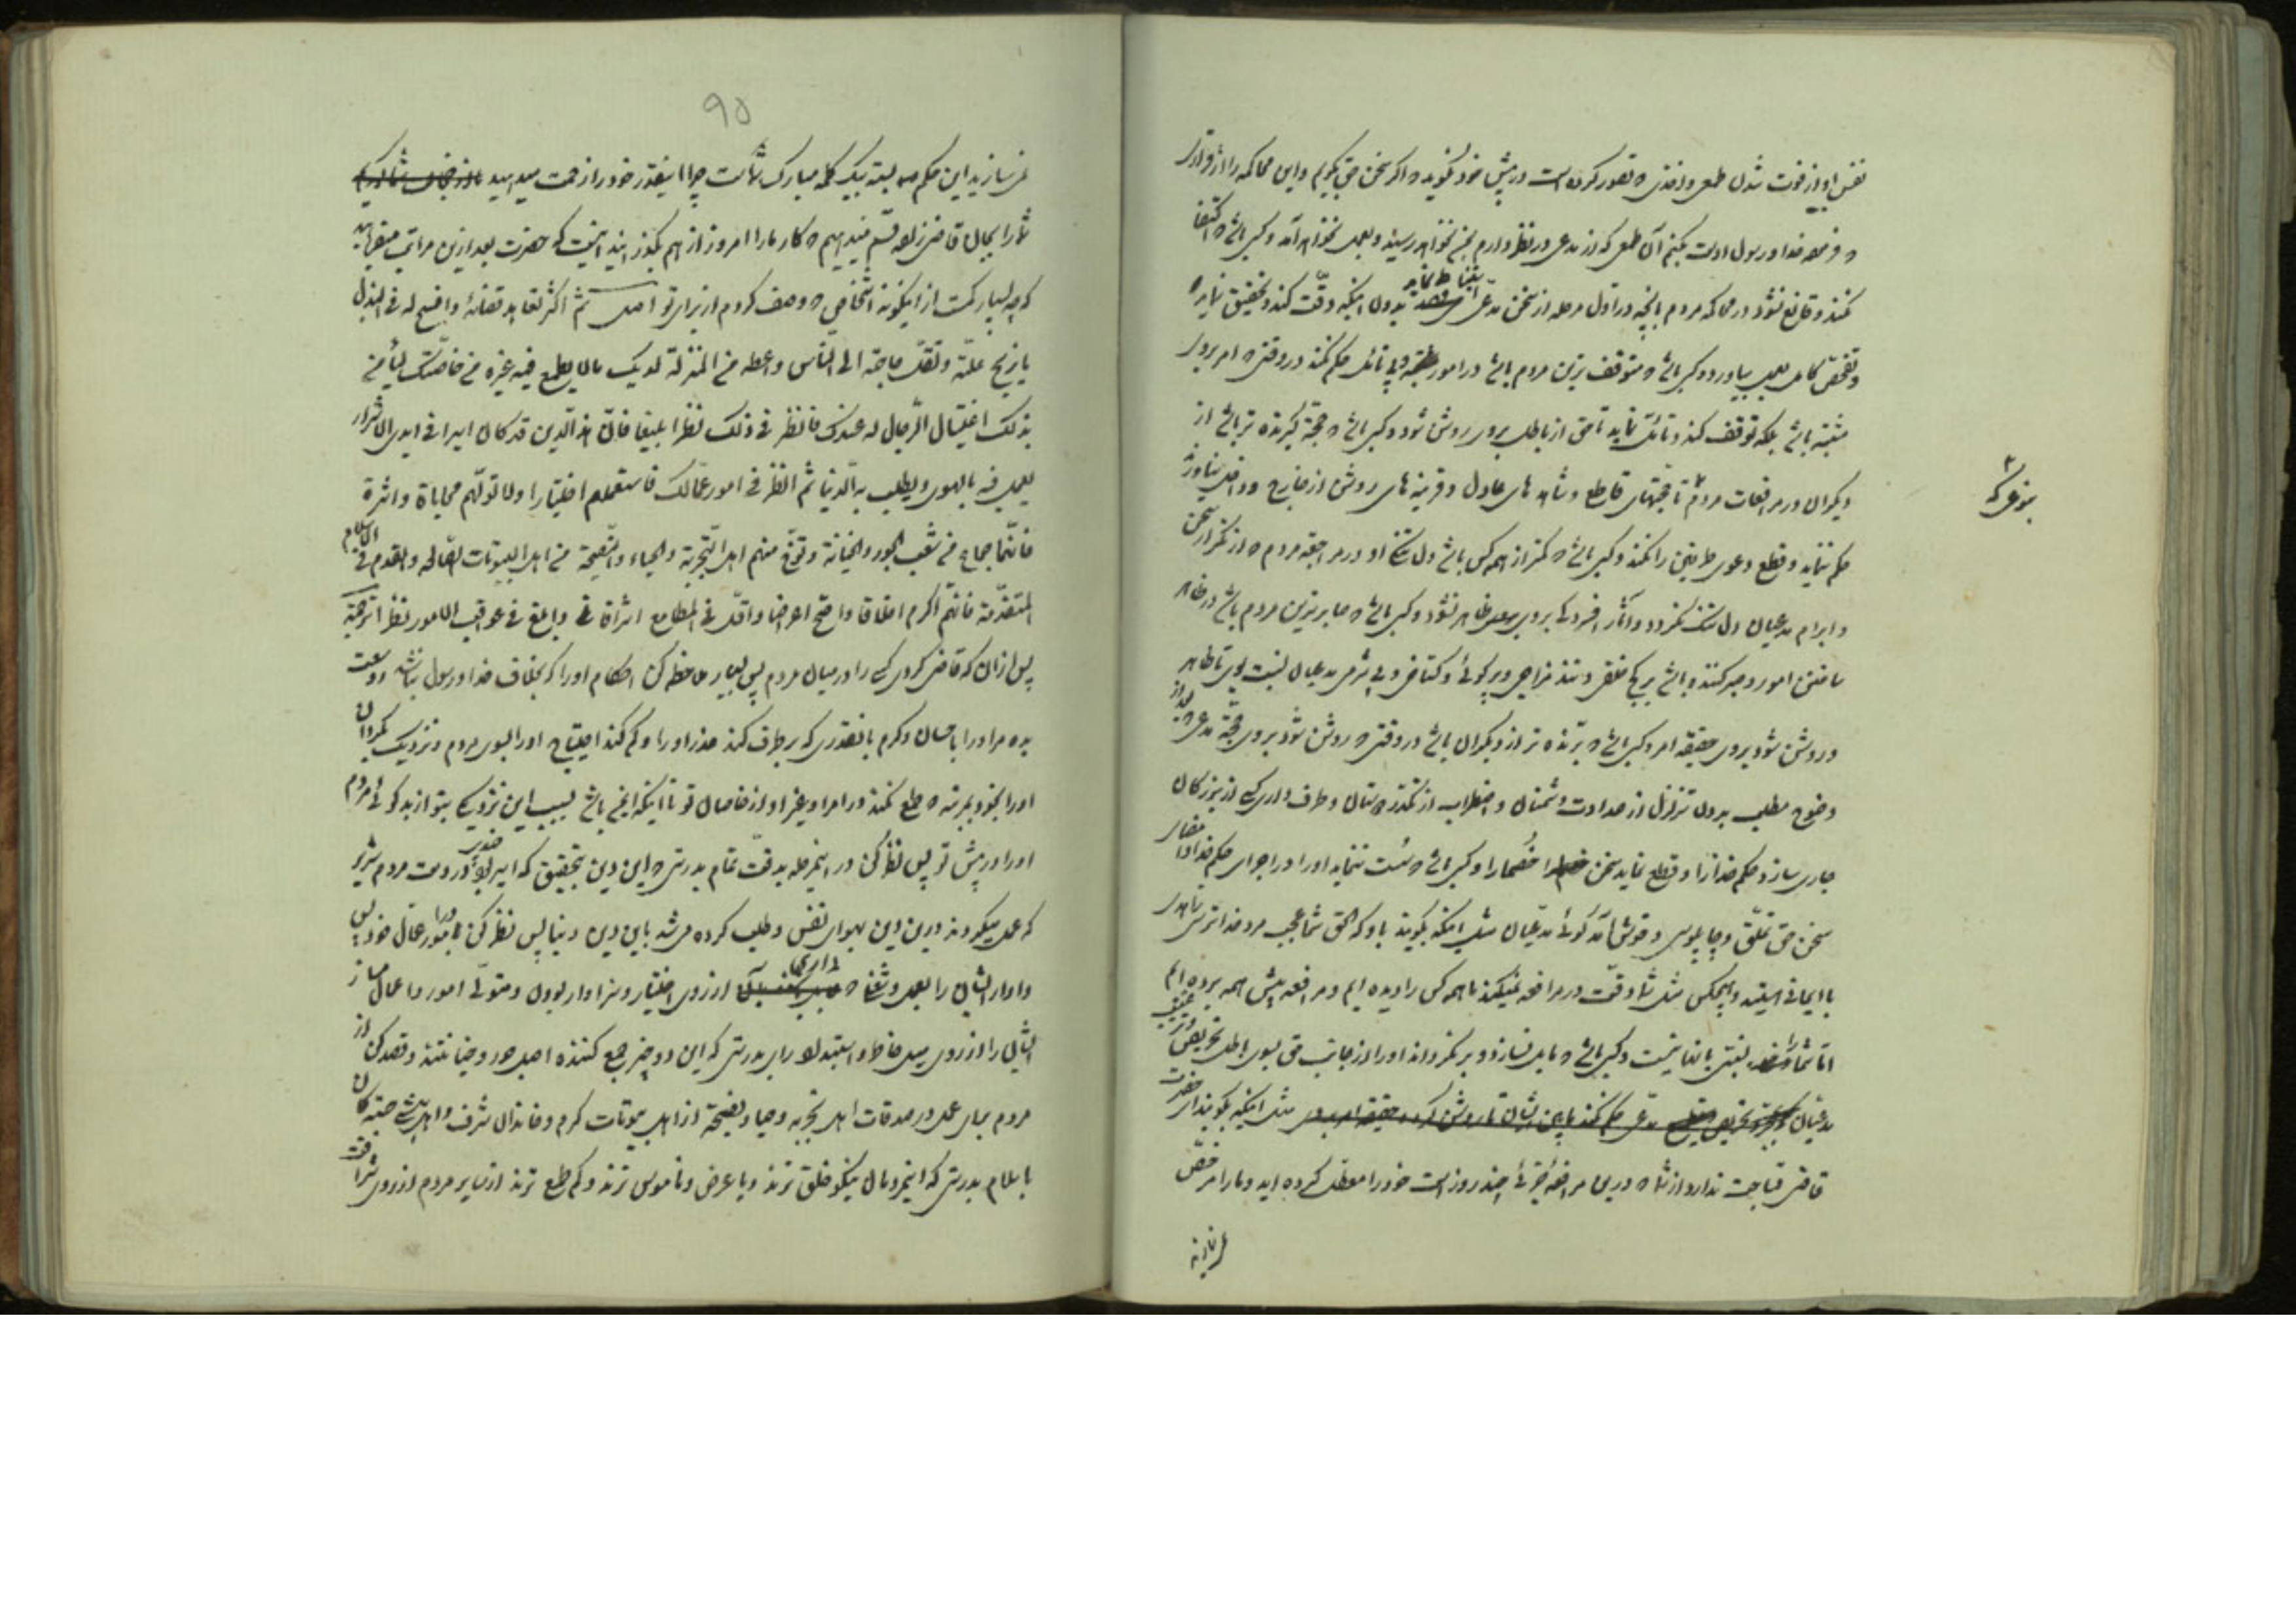 نفس او از فوت شدن طمع و اخذی که تصور کرده است در پیش خود نگوید که اگر سخن حق بگویم و این محاکمه را از قرار
که فرموده خدا و رسول اوست بکنم آن طمع که از مدعی در نظر دارم بمن نخواهد رسید و بعمل نخواهد آمد و کسی باشد که اکتفا
نکند و قانع نشود در محاکمه مردم بآنچه در اول مرحله از سخن مدعی بدون اینکه دقت کند و تحقیق نماید
و تفحص کامل بعمل بیاورد و کسی باشد که متوقف ترین مردم باشد در امور و بی تأمل حکم نکند در وقتی که امر بروی
مشتبه باشد بلکه توقف کند و تأمل نماید تا حق از باطل بروی روشن شود و کسی باشد که حجة گیرنده تر باشد از
دیگران در مرافعات مردم تا حجتهای قاطع و شاهد های عادل و قرینه های روشن از خارج و داخل نیاورند
حکم ننماید و قطع دعوی طرفین را نکند و کسی باشد که کمتر از همه کس باشد دل تنگی او در مراجعه مردم که از تکرار سخن
و ابرام مدعیان دل تنگ نگردد و آثار افسردگی بروی ظاهر نشود و کسی باشد که صابرترین مردم باشد در ظاهر
ساختن امور و صبر کننده باشد بر کج خلقی و تند مزاجی و پرگوئی و گستاخی و بی شرمی مدعیان نسبت بوی تا ظاهر
و روشن شود بروی حقیقة امر و کسی باشد که برنده تر از دیگران باشد در وقتی که روشن شود بروی حجة مدعی که بعد از
وضوح مطلب بدون تزلزل از عداوت دشمنان و اضطراب از تکدر دوستان و طرف داری کسی از بزرگان
جاری سازد حکم خدا را و قطع نماید سخن خصما را و کسی باشد که سست ننماید او را در اجرای حکم خدا و امضای
سخن حق تملق و چاپلوسی و خوش آمد گوئی مدعیان مثل اینکه بگویند باو که الحق شما عجب مرد خداترس
با ایمانی هستید و هیچکس مثل شما دقت در مرافعه نمیکند ما همه کس را دیده ایم و مرافعه پیش همه برده ایم
اما شما را نسبتی بآنها نیست و کسی باشد که مایل نسازد و برنگرداند او را از جانب حق بسوی باطل تحریص و ترغیب
مدعیان مثل اینکه بگویند ای حضرت
قاضی قباحت ندارد از شما که درین مرافعه جزئی چند روز است خود را معطل کرده اید و ما را مرخص
نمی سازید این حکم بسته بیک کلمه مبارک شماست چرا اینقدر خود را زحمت میدهید
شما را بجان قاضی زاده قسم میدهیم که کار ما را امروز از هم بگذرانید اینست که حضرت بعد ازین مراتب میفرماید
که چه بسیار کمست از اینگونه اشخاصی که وصف کردم از برای تو اصل ثم اکثر تعاهد قضائه وافسح له فی البذل
ما یزیح علته وتقل حاجته الی الناس واعطه من المنزلة لدیک ما لا یطمع فیه غیره من خاصتک لیأمن
بذلک اغتیال الرجال له عندک فانظر فی ذلک نظرا بلیغا فان هذا الدین قد کان اسیرا فی ایدی الاشرار
یعمل فیه بالهوی ویطلب به الدنیا ثم انظر فی امور عمالک فاستعملهم اختبارا ولا تولهم محاباة واثرة
فانهما جماع من شعب الجور والخیانة وتوخ منهم اهل التجربة والحیاء والنصیحة من اهل البیوتات الصالحة والقدم فی الاسلام
المتقدمة فانهم اکرم اخلاقا واصح اعراضا واقل فی المطامع اشرافا وابلغ فی عواقب الامور نظرا ترجمة
پس از ان که قاضی کردی کسی را در میان مردم پس بسیار ملاحظه کن احکام او را که بخلاف خدا و رسول نباشد و وسعت
بده مر او را باحسان و کرم بآنقدری که برطرف کند عذر او را و کم کند احتیاج او را بسوی مردم و نزدیک بگردان
او را بخود بمرتبه که طمع نکند در امر او غیر او از خاصان تو تا اینکه ایمن باشد بسبب این نزدیکی بتو از بدگوئی مردم
او را در پیش تو پس نظر کن در اینمرحله بدقت تمام بدرستی که این دین بتحقیق که اسیر بود در دست مردم شریر
که عمل میکردند درین دین بهوای نفس و طلب کرده میشد باین دین دنیا پس نظر کن در امور عمال خود پس
وادار ایشان را بعمل و شغل از روی اختیار و سزاوار بودن و متولی امور و اعمال مساز
ایشان را از روی میل خاطر و استبداد رای بدرستی که این دو چیز جمع کننده اصل جور و خیانتند و قصد کن از
مردم برای عمل و صدقات اهل تجربه و حیا و نصیحة از اهل بیوتات کرم و خاندان شرف و
باسلام بدرستی که اینمردمان نیکو خلق ترند و با عرض و ناموس ترند و کم طمع ترند از سایر مردم از روی شرافت
نمی سازید
۹۵